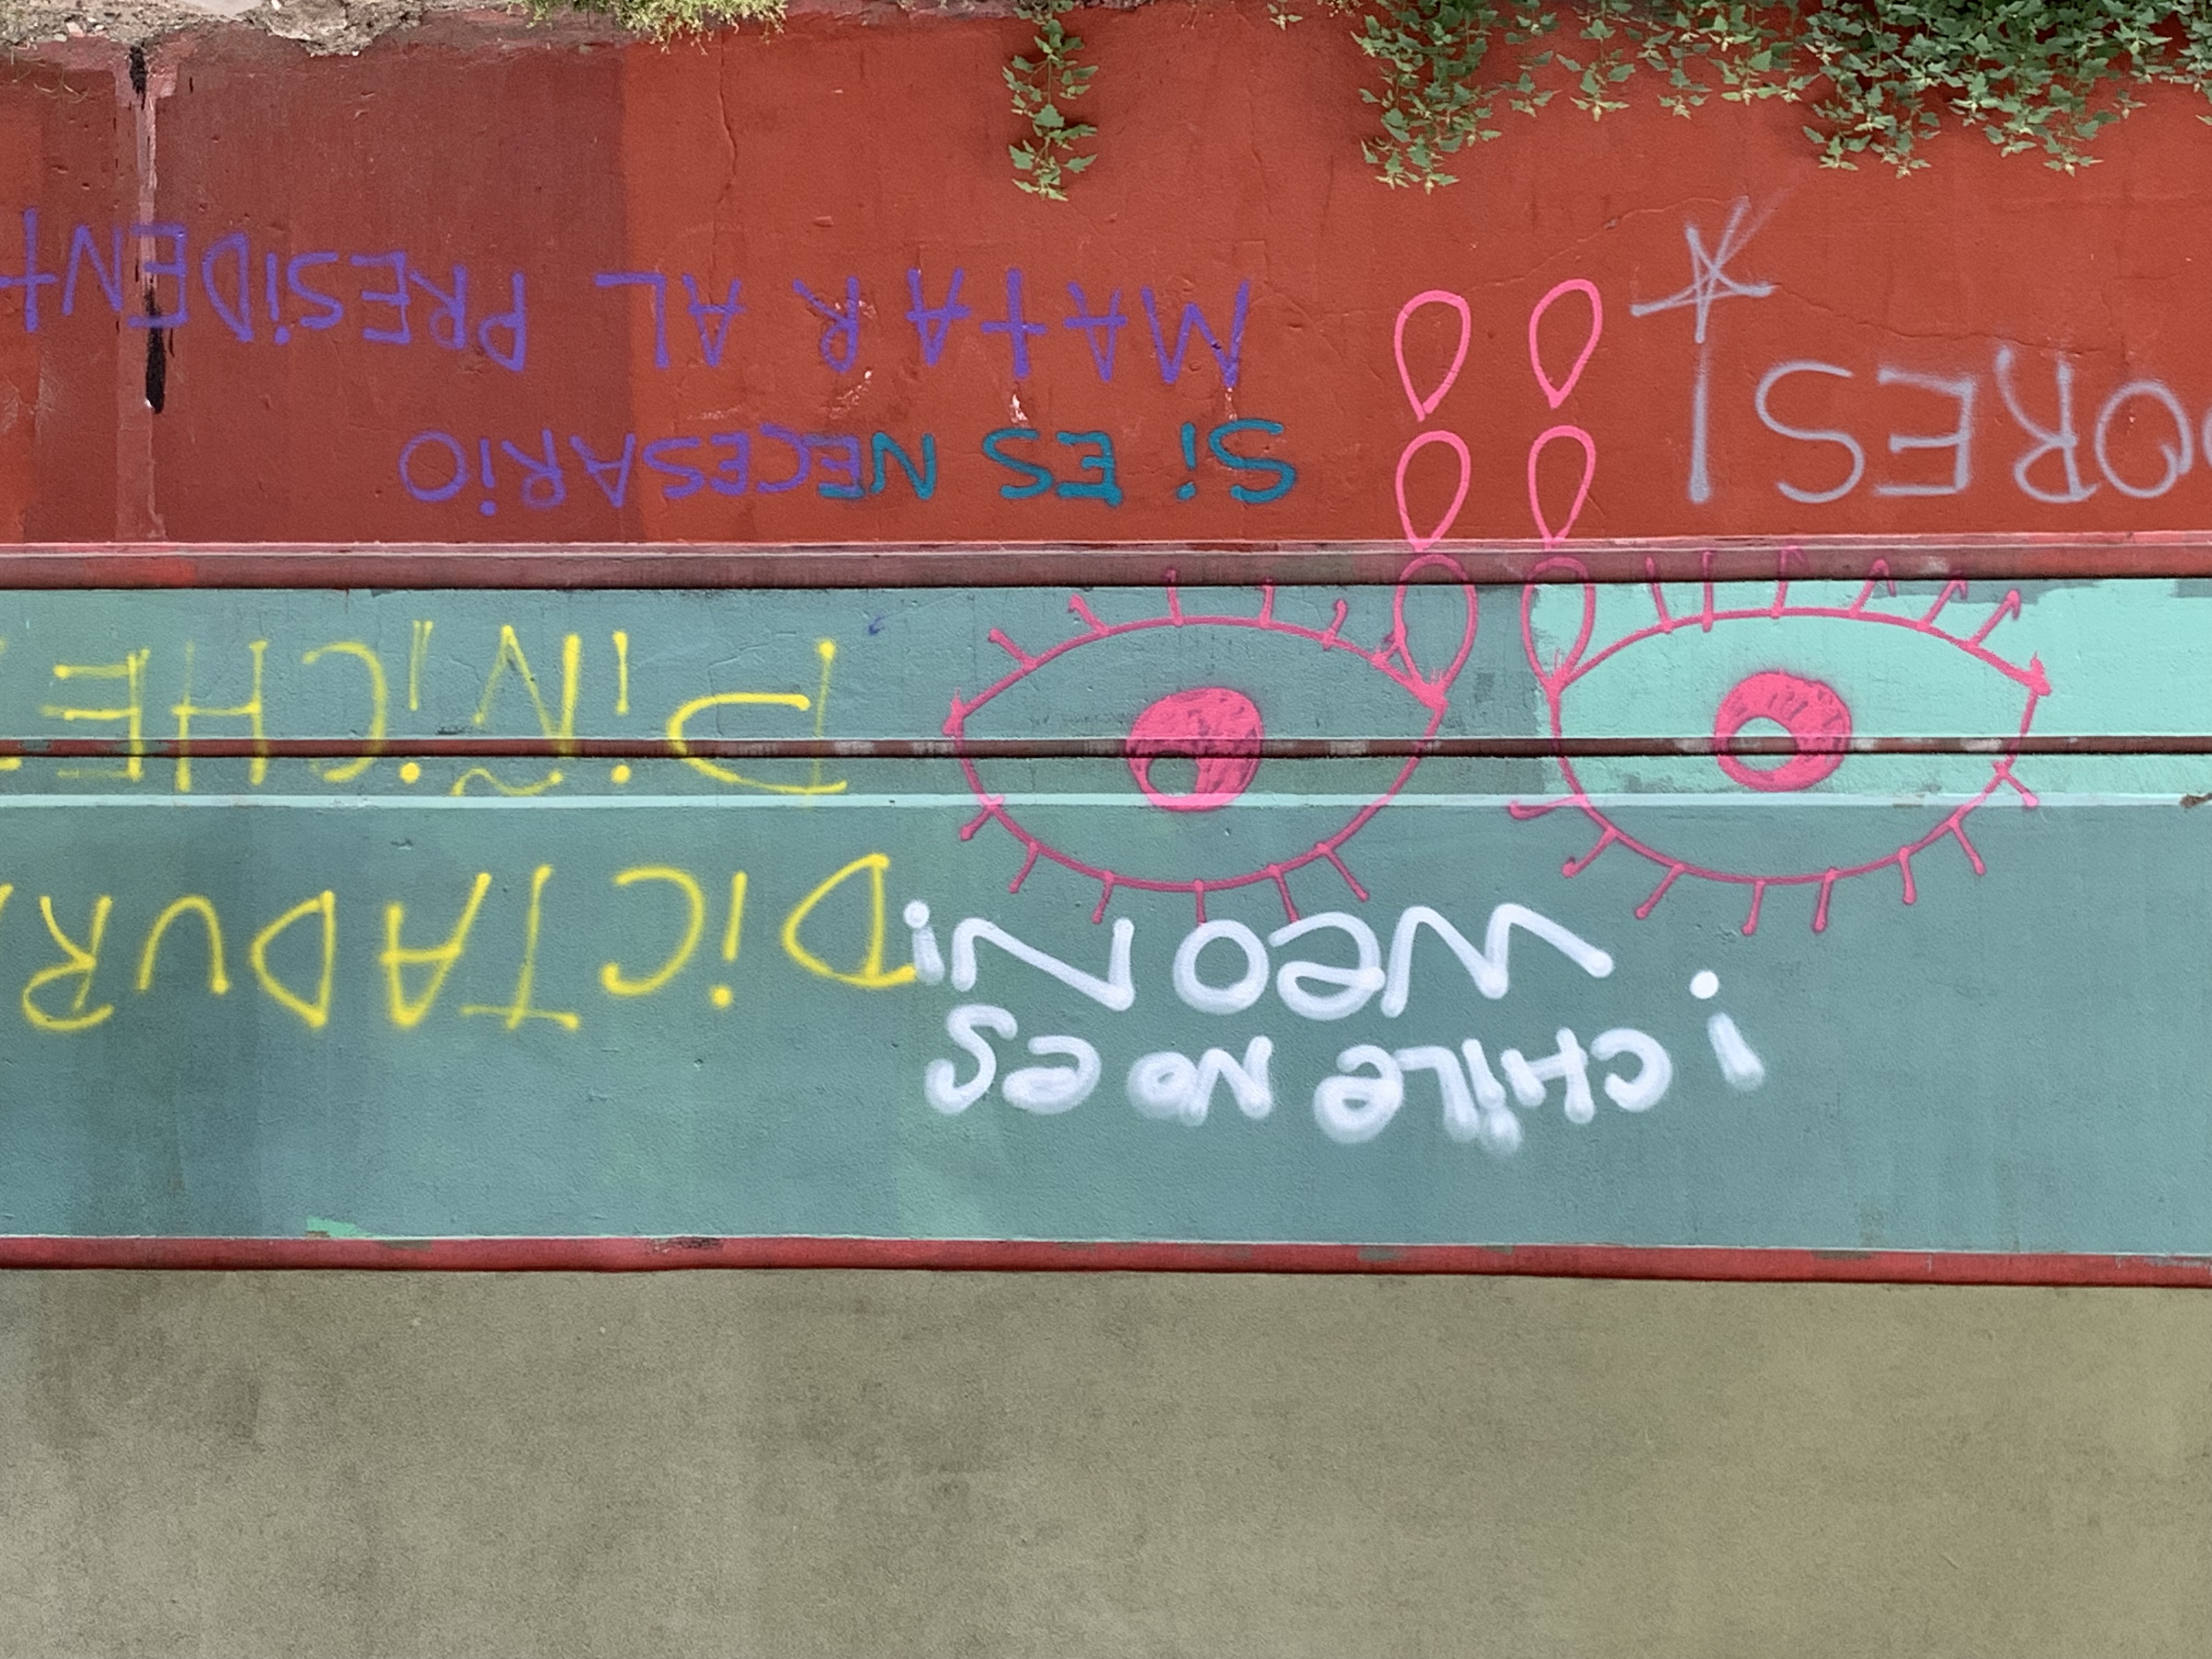 ! CHiLe No es
weoN!
DiCTADURA
PiÑiCHET
DORES!
Si ES NECESARiO
MAtAR AL PRESiDENt